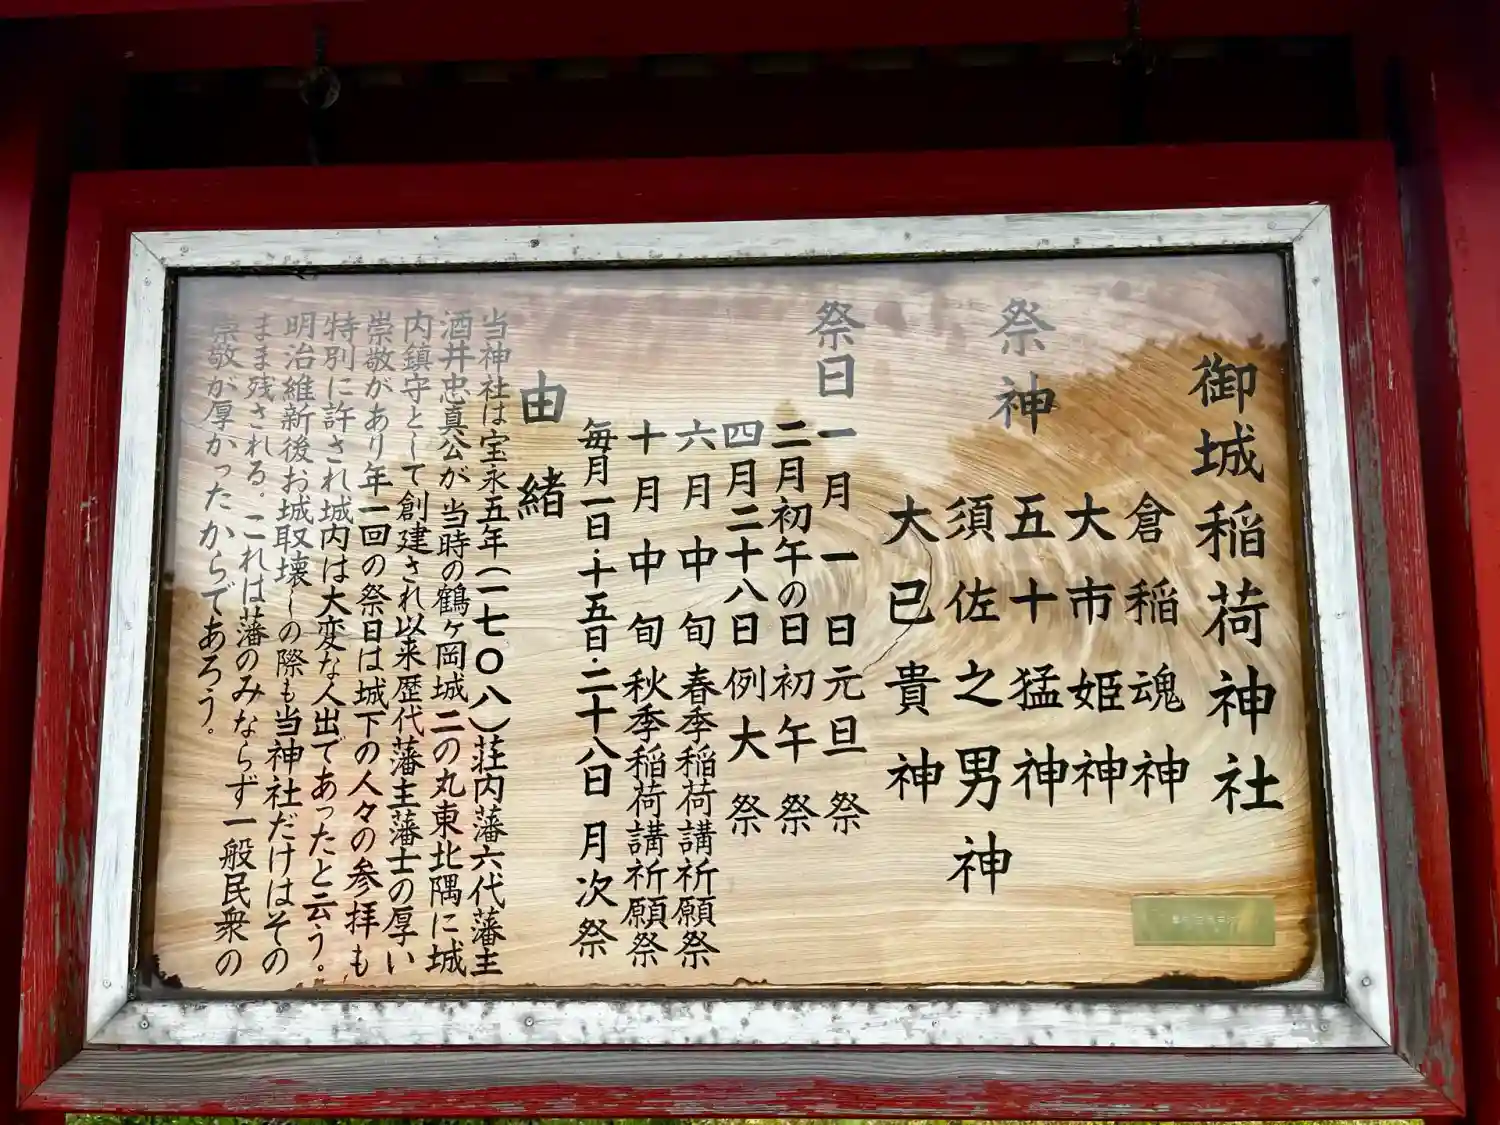 御城稲荷神社
祭神
倉稲魂神
大市姫神
五十猛神
須佐之男神
大己貴神
祭日
一月一日元旦祭
二月初午の日初午祭
四月二十八日例大祭
六月中旬春季稲荷講祈願祭
十月中旬秋季稲荷講祈願祭
毎月一日・十五日・二十八日月次祭
由緒
当神社は宝永五年(一七〇八)荘内藩六代藩主
酒井忠真公が当時の鶴ヶ岡城二の丸東北隅に城
内鎮守として創建され以来歴代藩主藩士の厚い
崇敬があり年一回の祭日は城下の人々の参拝も
特別に許され城内は大変な人出であったと云う。
明治維新後お城取壊しの際も当神社だけはその
まま残される。これは藩のみならず一般民衆の
崇敬が厚かったからであろう。